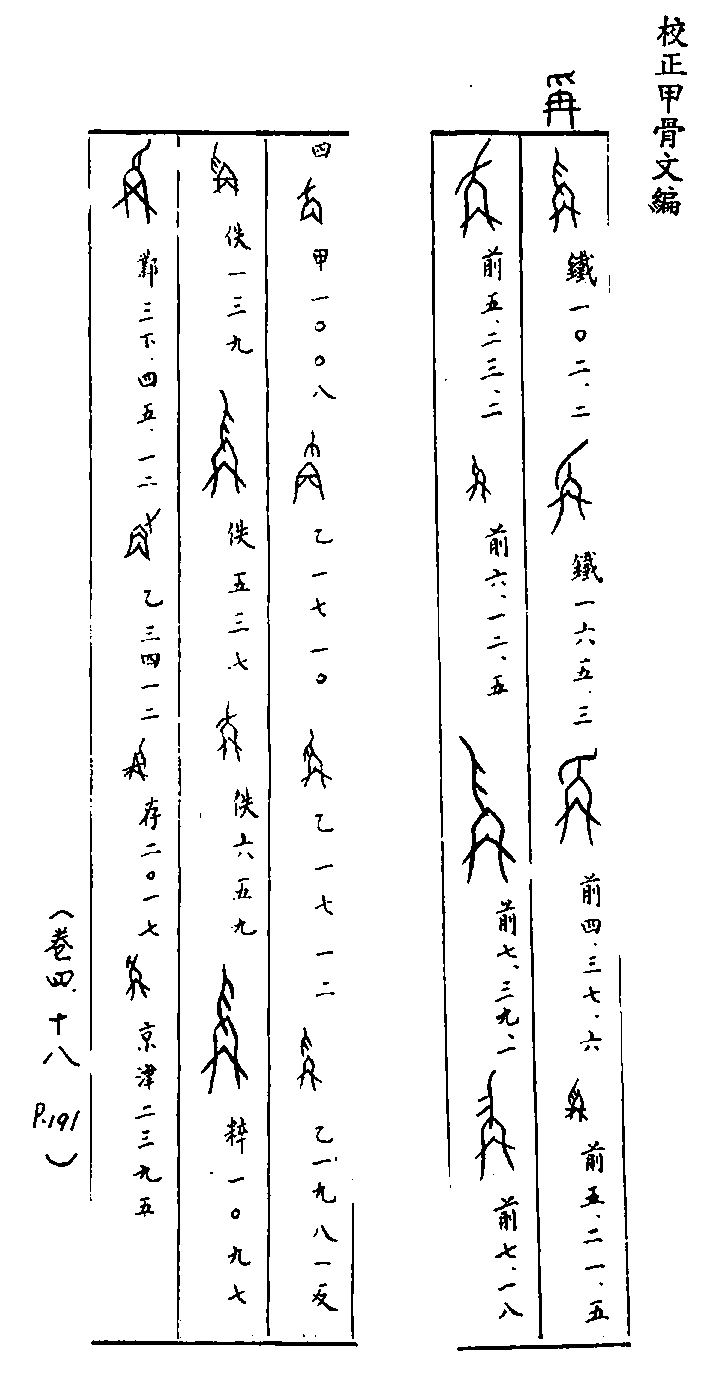 校正甲骨文編
爯
鐵一〇二.二 鐵一六五.三 前四.三七.六 前五.二一.五
前五.二三.二 前六.一二.五 前七.三九.一 前七.一八
四 甲一〇〇八 乙一七一〇 乙一七一二 乙一九八一反
佚一三九 佚五三七 佚六五九 粹一〇九七
鄴三下.四五.一二 乙三四一二 存二〇一七 京津二三九五
(卷四.十八 P.191)